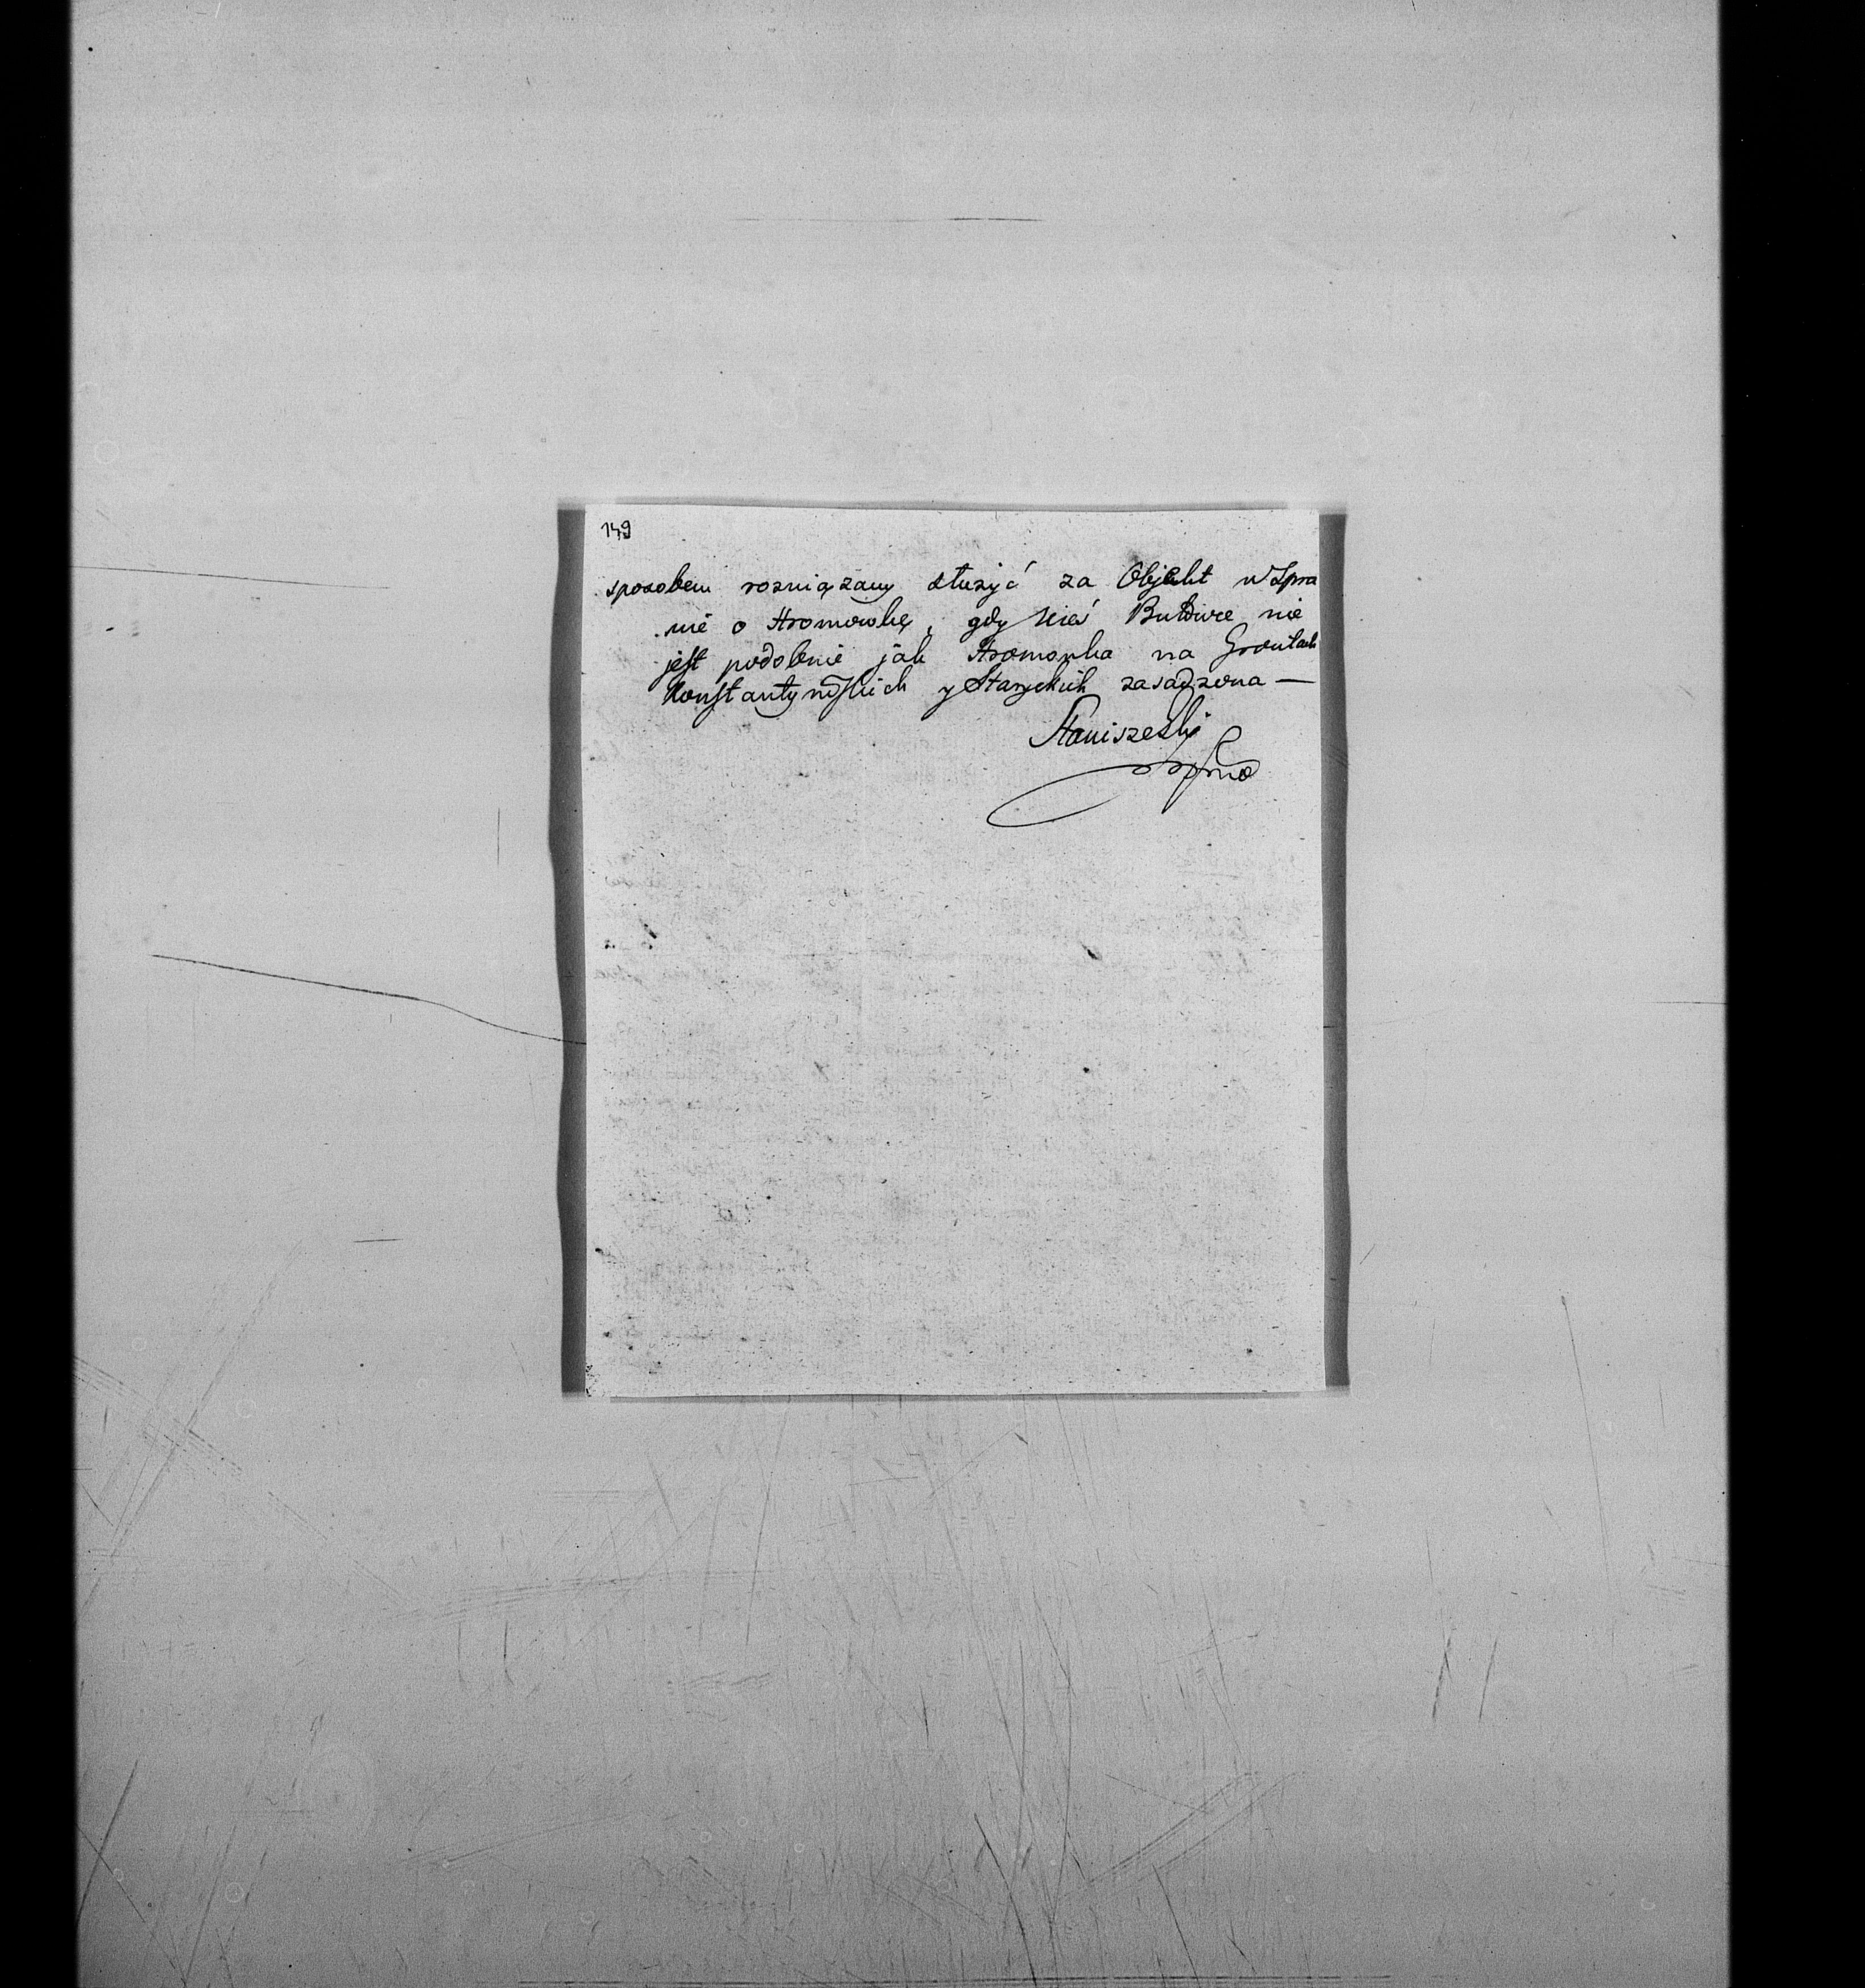 149
sposobem rozwiązany służyć za Objekt w Spra
wie o Hromowkę, gdy wieś Butowce nie
jest podobnie jak Hromowka na Gruntach
Konstantynowskich y Staryckich zasadzona —
Staniszeski